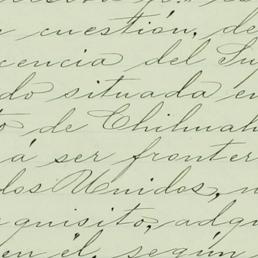 cuestión, de
cencia del Su
do situada en
o de Chihuah
á ser fronter
dos Unidos, n
quisito, adqu
en él, según